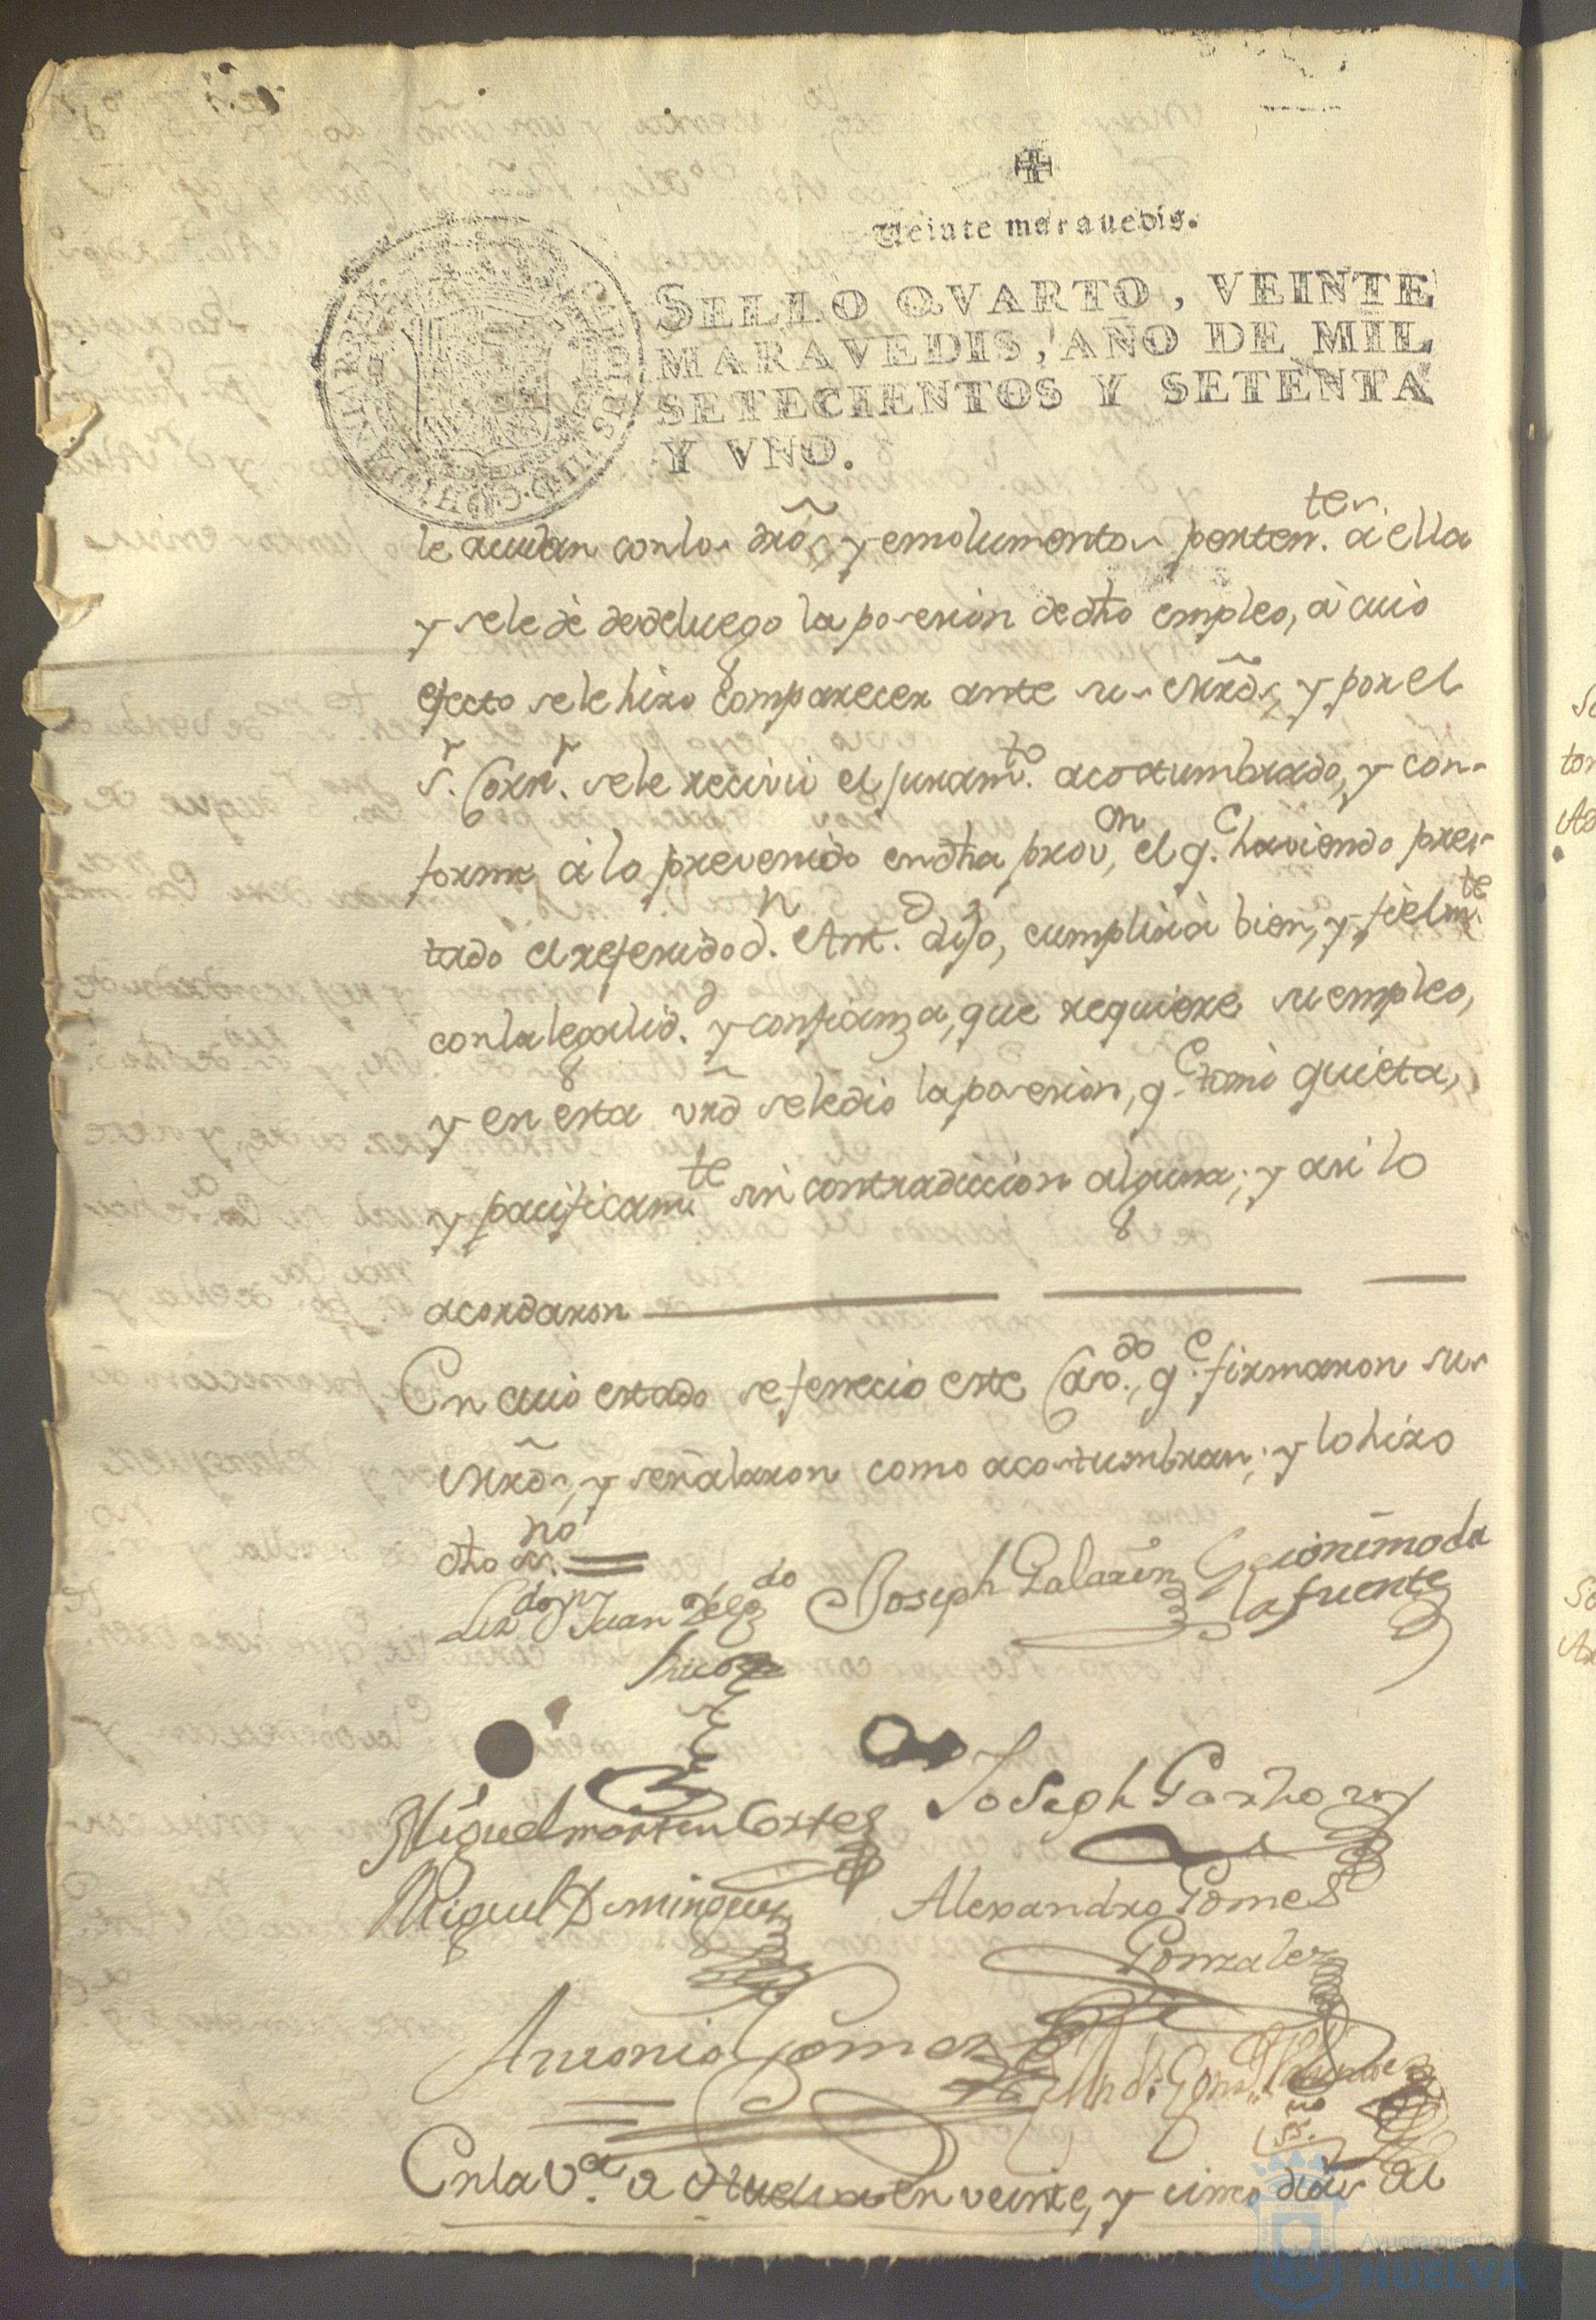 Veinte marauedis.
SELLO QVARTO, VEINTE
MARAVEDIS, AÑO DE MIL
SETECIENTOS Y SETENTA
Y VNO.
le acudan con los dros, y emolumentos perten.tes à ella
y se le dè desde luego la posesion de dho empleo, à cuio
efecto se le hizo comparecer ante sus Mrds, y por el
s.r Corr.r se le recivió el juram.to acostumbrado, y con-
forme à lo prevenido en dha prov.on, el q.e haviendo pres-
tado el referido d.n Ant.o dijo, cumplirà bien, y fielm.te
con la legalid.d y confianza, que requiere su empleo,
y en esta vrd se le dió la posesion, q.e tomó quieta,
y pacificam.te sin contradiccion alguna; y asi lo
acordaron
En cuio estado se fenecio este Cav.do, q.e firmaron sus
Mrds, y señalaron como acostumbran; y lo hizo
dho ss.no
Liz.do Dn Juan Delg.do
Joseph Galazin
Geronimo de
la fuente
Miguel martin Cortes
Joseph Garzhon
Miguel Dominguez
Alexandro Gomes
Gonzalez
Antonio Gomez
En la V.a de Huelva en veinte, y cinco dias del
Ayuntamiento de
HUELVA